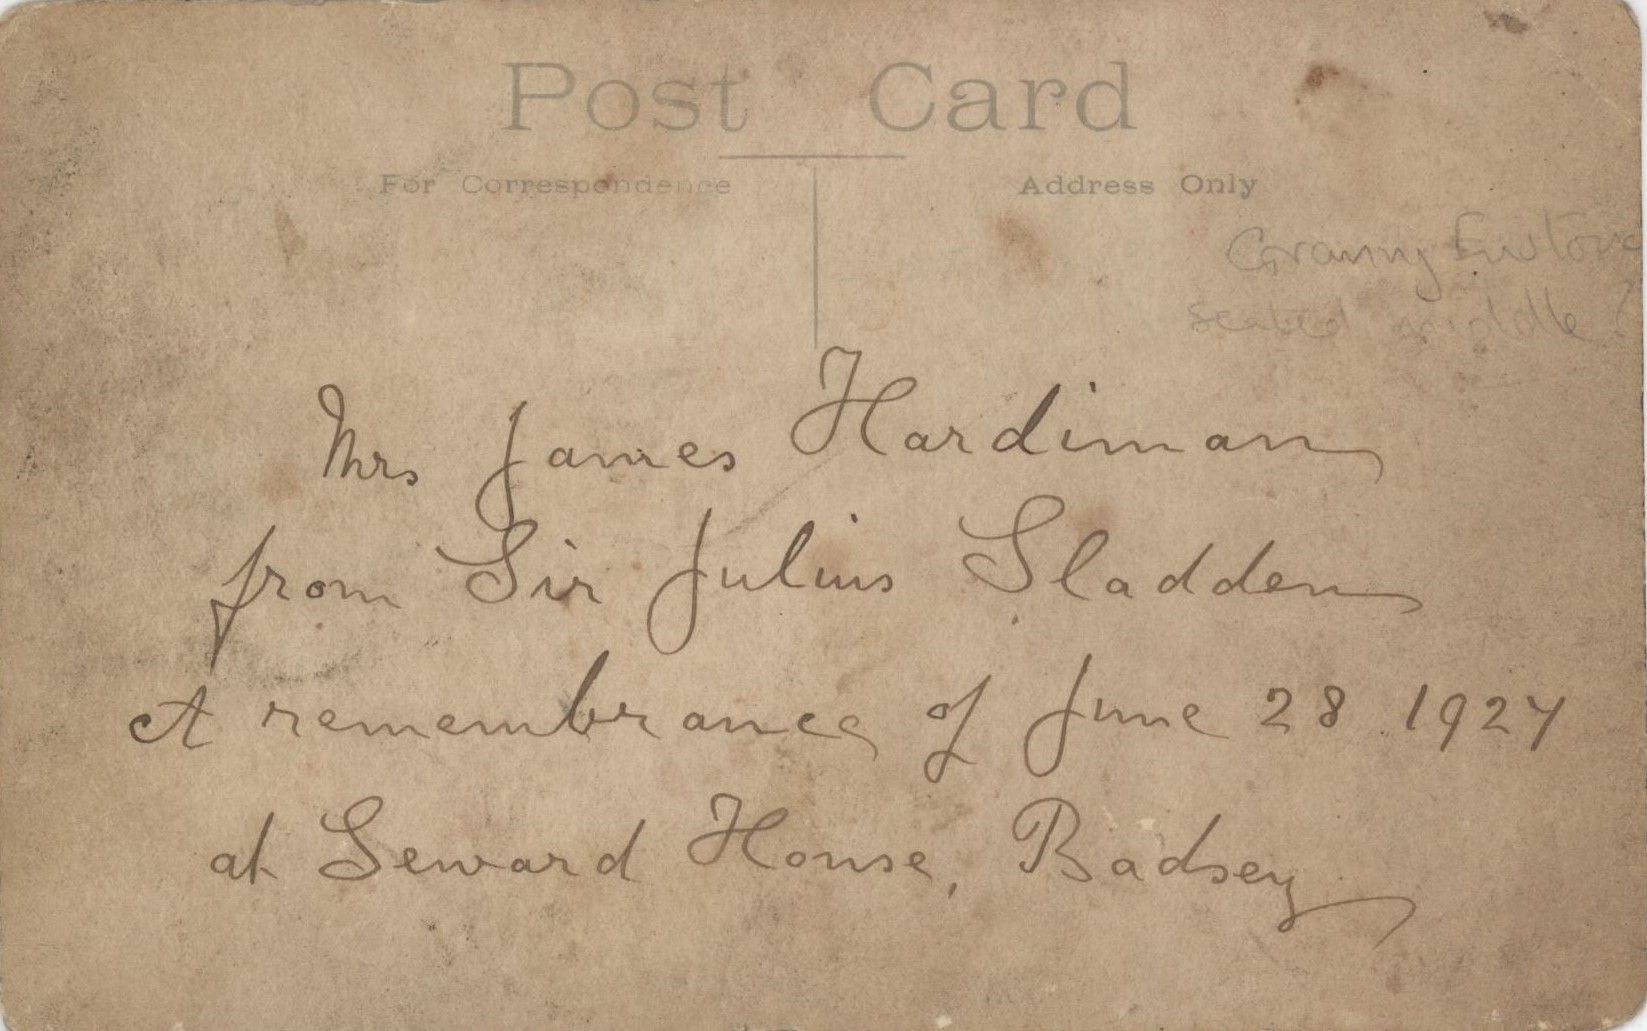 Post Card
For Correspondence
Address Only
Granny
seated middle ?
Mrs James Hardiman
from Sir Julius Sladden
A remembrance of June 28 1927
at Seward House, Badsey